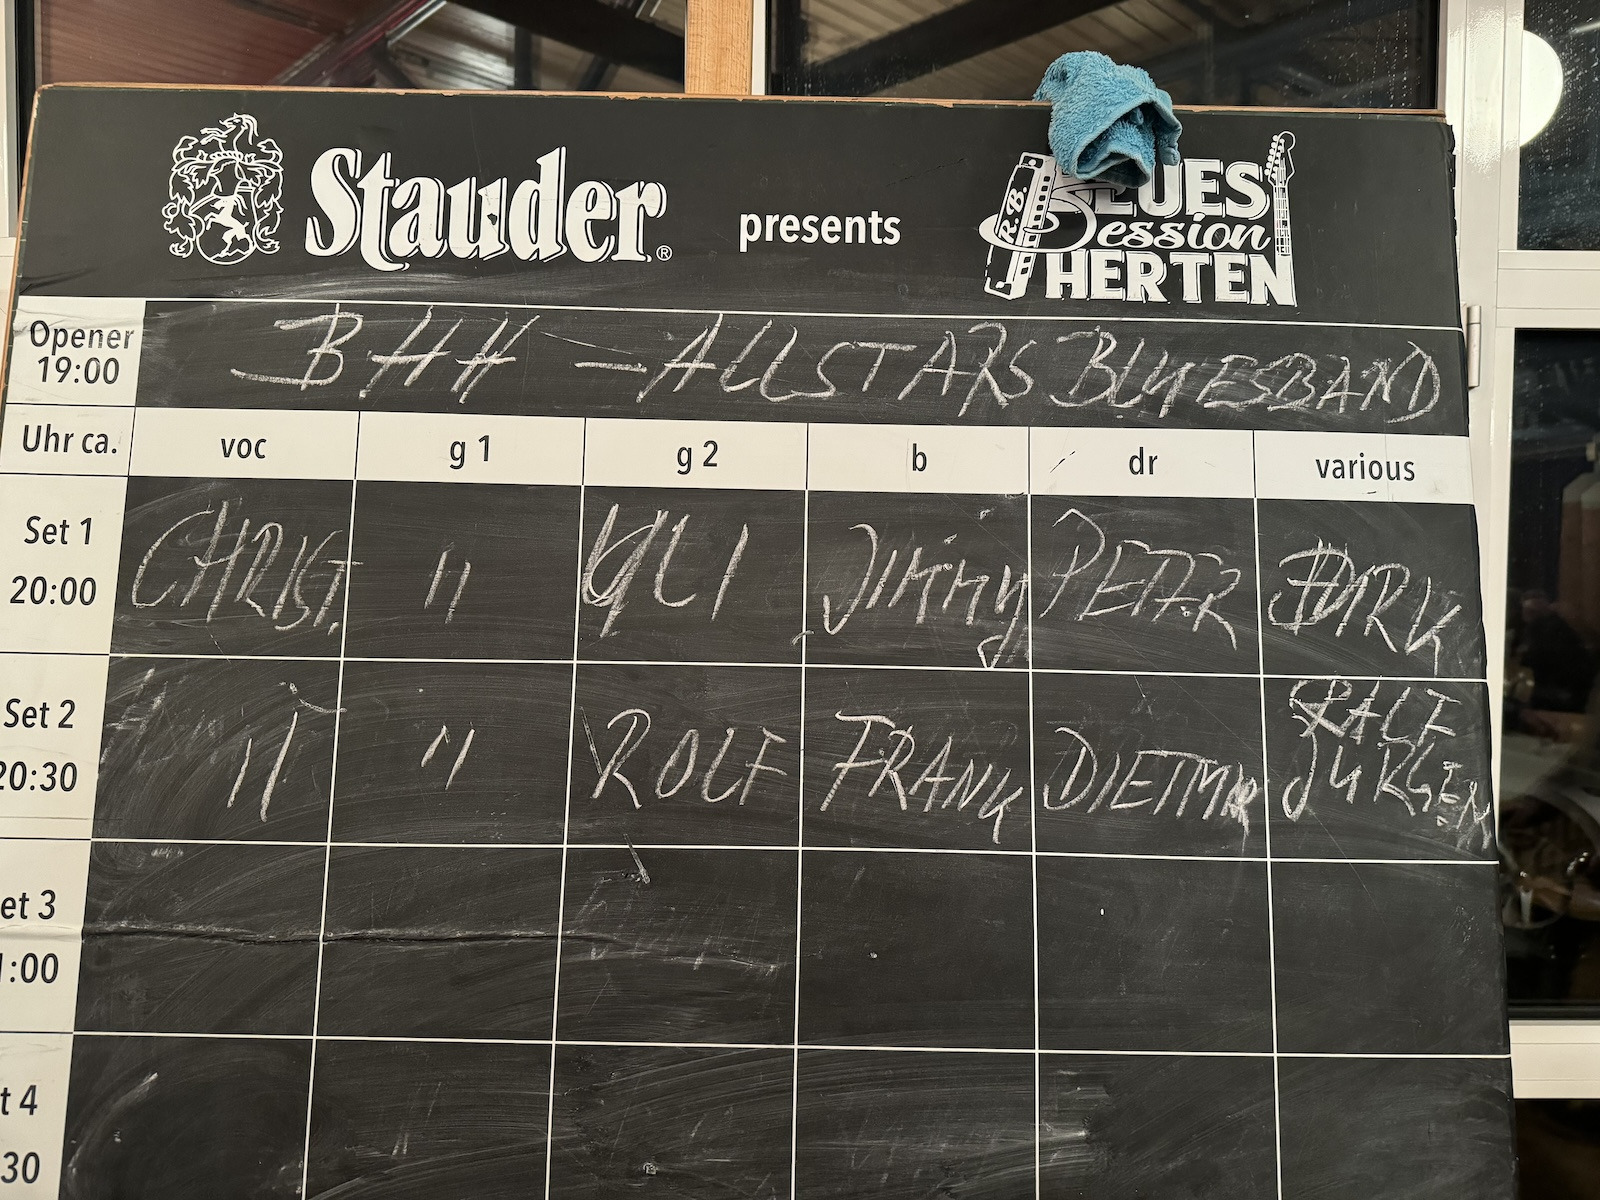 Stauder®
presents
R.B.
BLUES
Session
HERTEN
Opener
19:00
BHH - ALLSTARS BLUESBAND
Uhr ca. voc g 1 g 2 b dr various
Set 1
20:00
CHRIST. " ULI Jimmy PETER DIRK
Set 2
20:30
" " ROLF FRANK DIETMAR RALF
JÜRGEN
et 3
:00
t 4
30